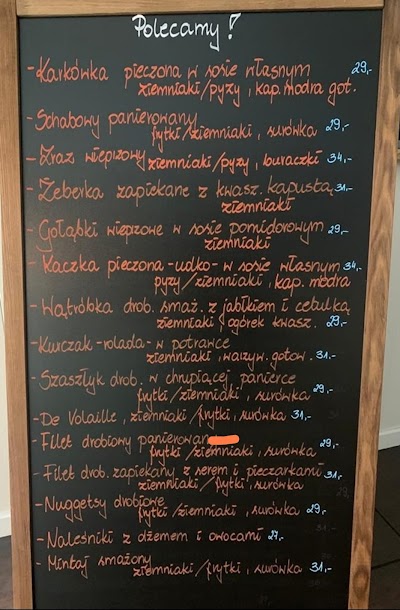 Polecamy!
- Karkówka pieczona w sosie własnym 29,-
ziemniaki/pyzy, kap. modra got.
- Schabowy panierowany
frytki/ziemniaki, surówka 29,-
- Zraz wieprzowy ziemniaki/pyzy, buraczki 34,-
- Żeberka zapiekane z kwasz. kapustą 31,-
ziemniaki
- Gołąbki wieprzowe w sosie pomidorowym 29,-
ziemniaki
- Kaczka pieczona -udko- w sosie własnym 34,-
pyzy/ziemniaki, kap. modra
- Wątróbka drob. smaż. z jabłkiem i cebulką
ziemniaki, ogórek kwasz. 29,-
- Kurczak -rolada- w potrawce
ziemniaki, warzyw. gotow. 31,-
- Szaszłyk drob. w chrupiącej panierce
frytki/ziemniaki, surówka 29,-
- De Volaille, ziemniaki/frytki, surówka 31,-
- Filet drobiowy panierowan
frytki/ziemniaki, surówka 29,-
- Filet drob. zapiekany z serem i pieczarkami 31,-
ziemniaki/frytki, surówka
- Nuggetsy drobiowe
frytki/ziemniaki, surówka 29,-
- Naleśniki z dżemem i owocami 27,-
- Mintaj smażony
ziemniaki/frytki, surówka 31,-